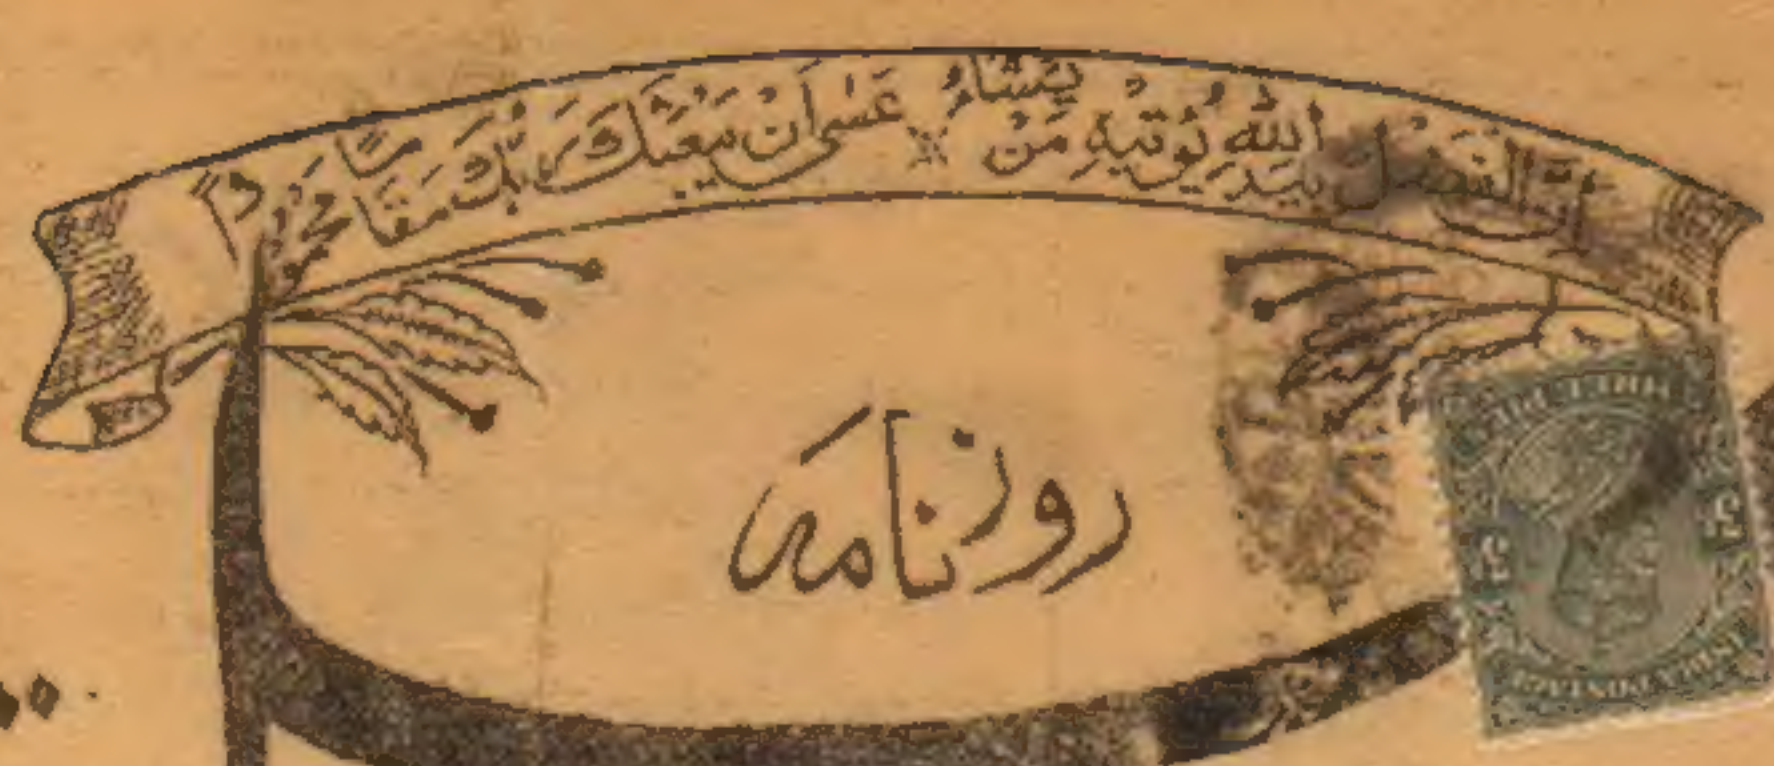 اِنَّ الْفَضْلَ بِيَدِ اللّٰهِ يُؤْتِيْهِ مَنْ يَّشَآءُ ※ عَسٰى اَنْ يَبْعَثَكَ رَبُّكَ مَقَامًا مَّحْمُوْدًا
روزنامہ